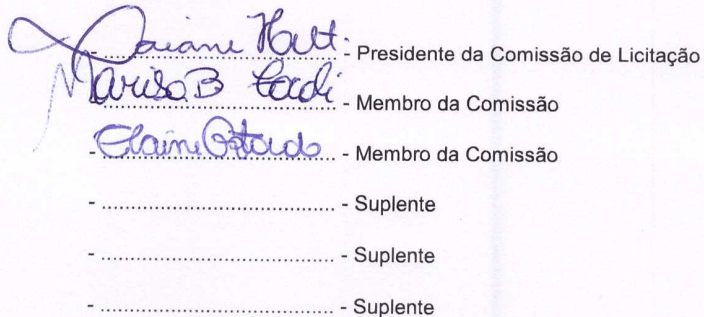 - Daiane Hatt - Presidente da Comissão de Licitação
Marisa B - Membro da Comissão
- Elaine - Membro da Comissão
- .................................... - Suplente
- .................................... - Suplente
- .................................... - Suplente